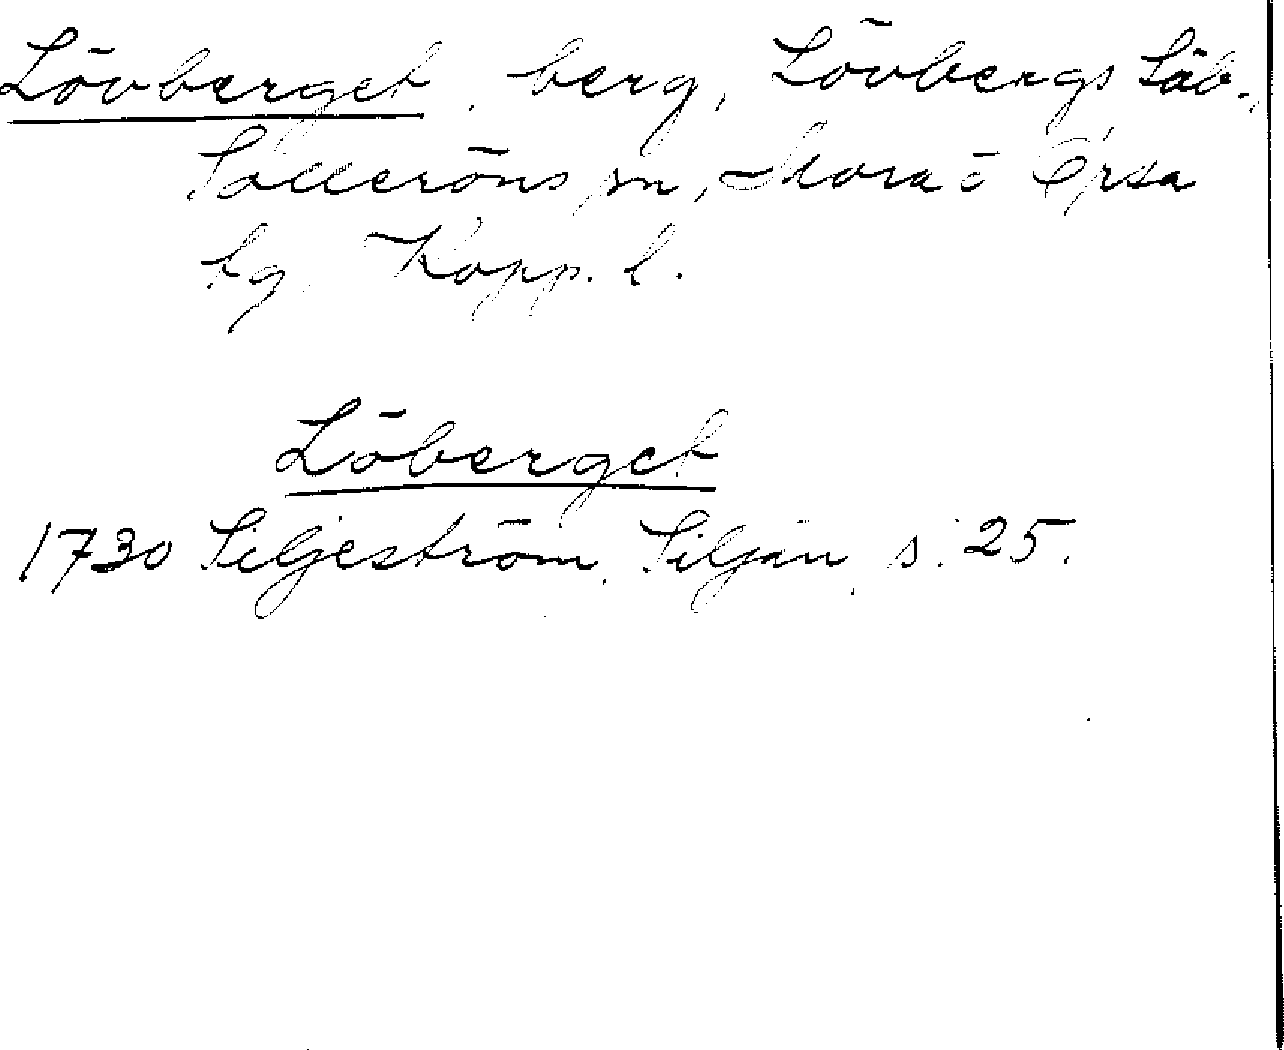 Lövberget, berg, Lövbergs Säb.,
Solleröns sn, Mora o Orsa
tg Kopp. l.
Löberget
1730 Siljeström, Siljan, s. 25.